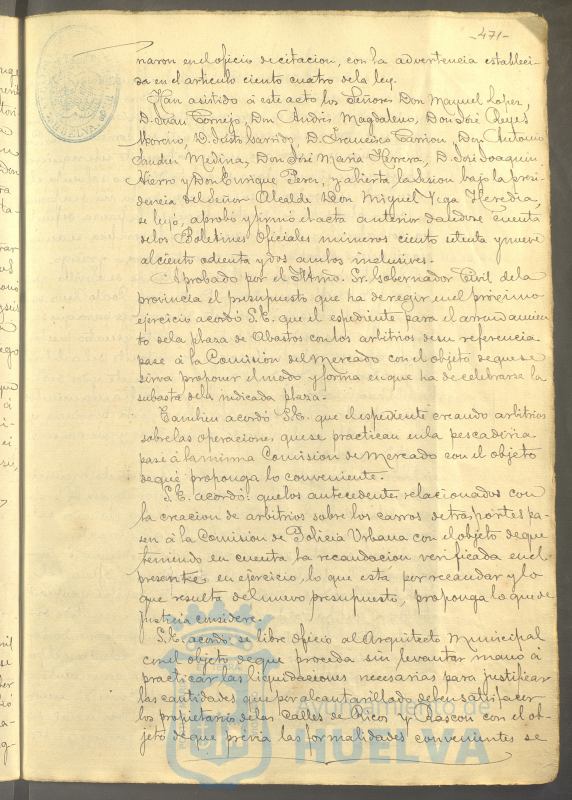 -471-
naron en el oficio de citacion, con la advertencia estableci-
da en el articulo ciento cuatro de la ley.
Han asistido á este acto los Señores Don Manuel Lopez,
D. Juan Cornejo, Don Andrés Magdaleno, Don José Reyes
Moreno, D. Justo Garrido, D. Francisco Carrion, Don Antonio
Medina, Don José Maria Herrera, D. José Joaquin
Hierro y Don Enrique Perez, y abierta la sesion bajo la presi-
dencia del Señor Alcalde Don Miguel Vega Heredia,
se leyó, aprobó y firmó el acta anterior dandose cuenta
de los Boletines Oficiales números ciento setenta y nueve
al ciento ochenta y dos ambos inclusives.
Aprobado por el Iltmo. Sr. Gobernador Civil de la
provincia el presupuesto que ha de regir en el próximo
ejercicio acordó S.E. que el espediente para el arrendamien-
to de la plaza de Abastos con los arbitrios de su referencia
pase á la Comision del Mercado con el objeto de que se
sirva proponer el modo y forma en que ha de celebrarse la
subasta de la indicada plaza.
Tambien acordó S.E. que el espediente creando arbitrios
sobre las operaciones que se practican en la pescaderia
pase á la misma Comision de Mercado con el objeto
de que proponga lo conveniente.
S.E. acordó: que los antecedentes relacionados con
la creacion de arbitrios sobre los carros de trasportes pa-
sen á la Comision de Policia Urbana con el objeto de que
teniendo en cuenta la recaudacion verificada en el
presente en ejercicio, lo que está por recaudar y lo
que resulta del nuevo presupuesto, proponga lo que de
justicia considere.
S.E. acordó se libre oficio al Arquitecto Municipal
con el objeto de que proceda sin levantar mano á
practicar las liquidaciones necesarias para justificar
las cantidades que por alcantarillado deben satisfacer
los propietarios de las Calles de Ricos y Rascon con el ob-
jeto de que previa las formalidades convenientes se
Ayuntamiento de
HUELVA